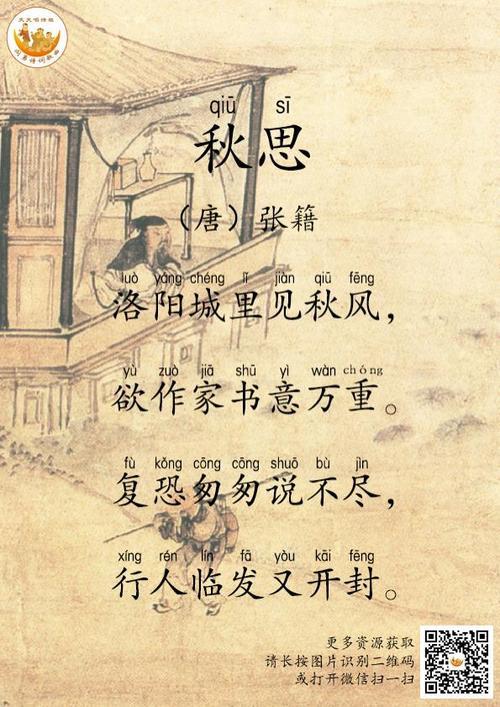 天天唱诗班
qiū sī
秋思
（唐）张籍
luò yáng chéng lǐ jiàn qiū fēng
洛阳城里见秋风，
yù zuò jiā shū yì wàn chóng
欲作家书意万重。
fù kǒng cōng cōng shuō bù jìn
复恐匆匆说不尽，
xíng rén lín fā yòu kāi fēng
行人临发又开封。
更多资源获取
请长按图片识别二维码
或打开微信扫一扫